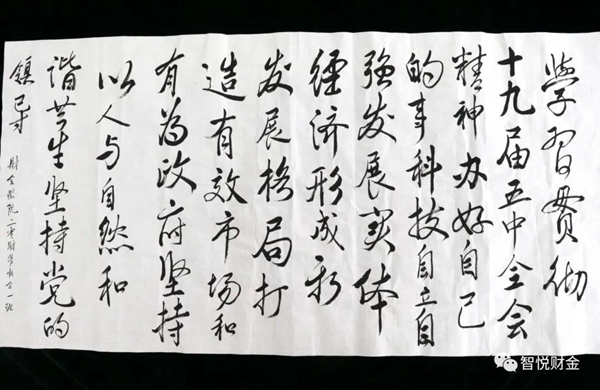 學習貫彻
十九届五中全会
精神办好自己
的事科技自立自
强发展实体
經济形成新
发展格局打
造有效市场和
有為政府坚持
以人与自然和
谐共生坚持党的
領导
财金学院二零财一班
智悦财金